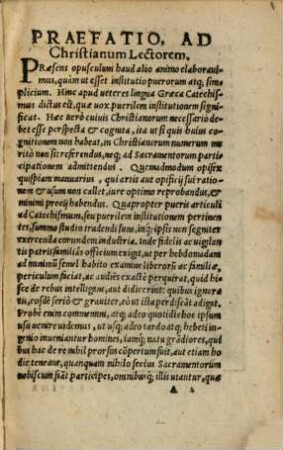 PRAEFATIO, AD
Christianum Lectorem.
PRæsens opusculum haud alio animo elaboraui-
mus, quàm ut esset institutio puerorum atq; sim
plicium. Hinc apud ueteres lingua Græca Catechis-
mus dictus est, quæ uox puerilem institutionem signi-
ficat. Hæc uerò cuiuis Christianorum necessariò de-
bet esse perspecta & cognita, ita ut si quis huius co-
gnitionem non habeat, in Christianorum numerum me
ritò non sit referendus, neq; ad Sacramentorum parti
cipationem admittendus. Quemadmodum opifex
quispiam manuarius, qui artis aut opificij sui ration-
em & usum non callet, iure optimo reprobandus, et
minimi precij habendus. Quapropter pueris articuli
ad Catechismum, seu puerilem institutionem pertinen
tes, summo studio tradendi sunt, inq; ipsis non segniter
exercenda eorundem industria. Inde fidelis ac uigilan
tis patrisfamiliâs officium exigit, ut per hebdomadam
ad minimum semel habito examine liberorũ ac familiæ,
periculum faciat, ac audiẽs exactè perquirat, quid hi-
sce de rebus intelligant, aut didicerint: quibus ignora
tis, eosdẽ seriò & grauiter, eò ut ista perdiscãt adigat.
Probè enim commemini, atq; adeo quotidie hoc ipsum
usu uenire uidemus, ut usq; adeo tardo atq; hebeti in-
genio inueniantur homines, iamq; natu grãdiores, qui
bus hac de re nihil prorsus cõpertum fuit, aut etiam ho
die teneant, quanquam nihilo secius Sacramentorum
nobiscum fiãt participes, omnibusq; illis utantur, quæ
A